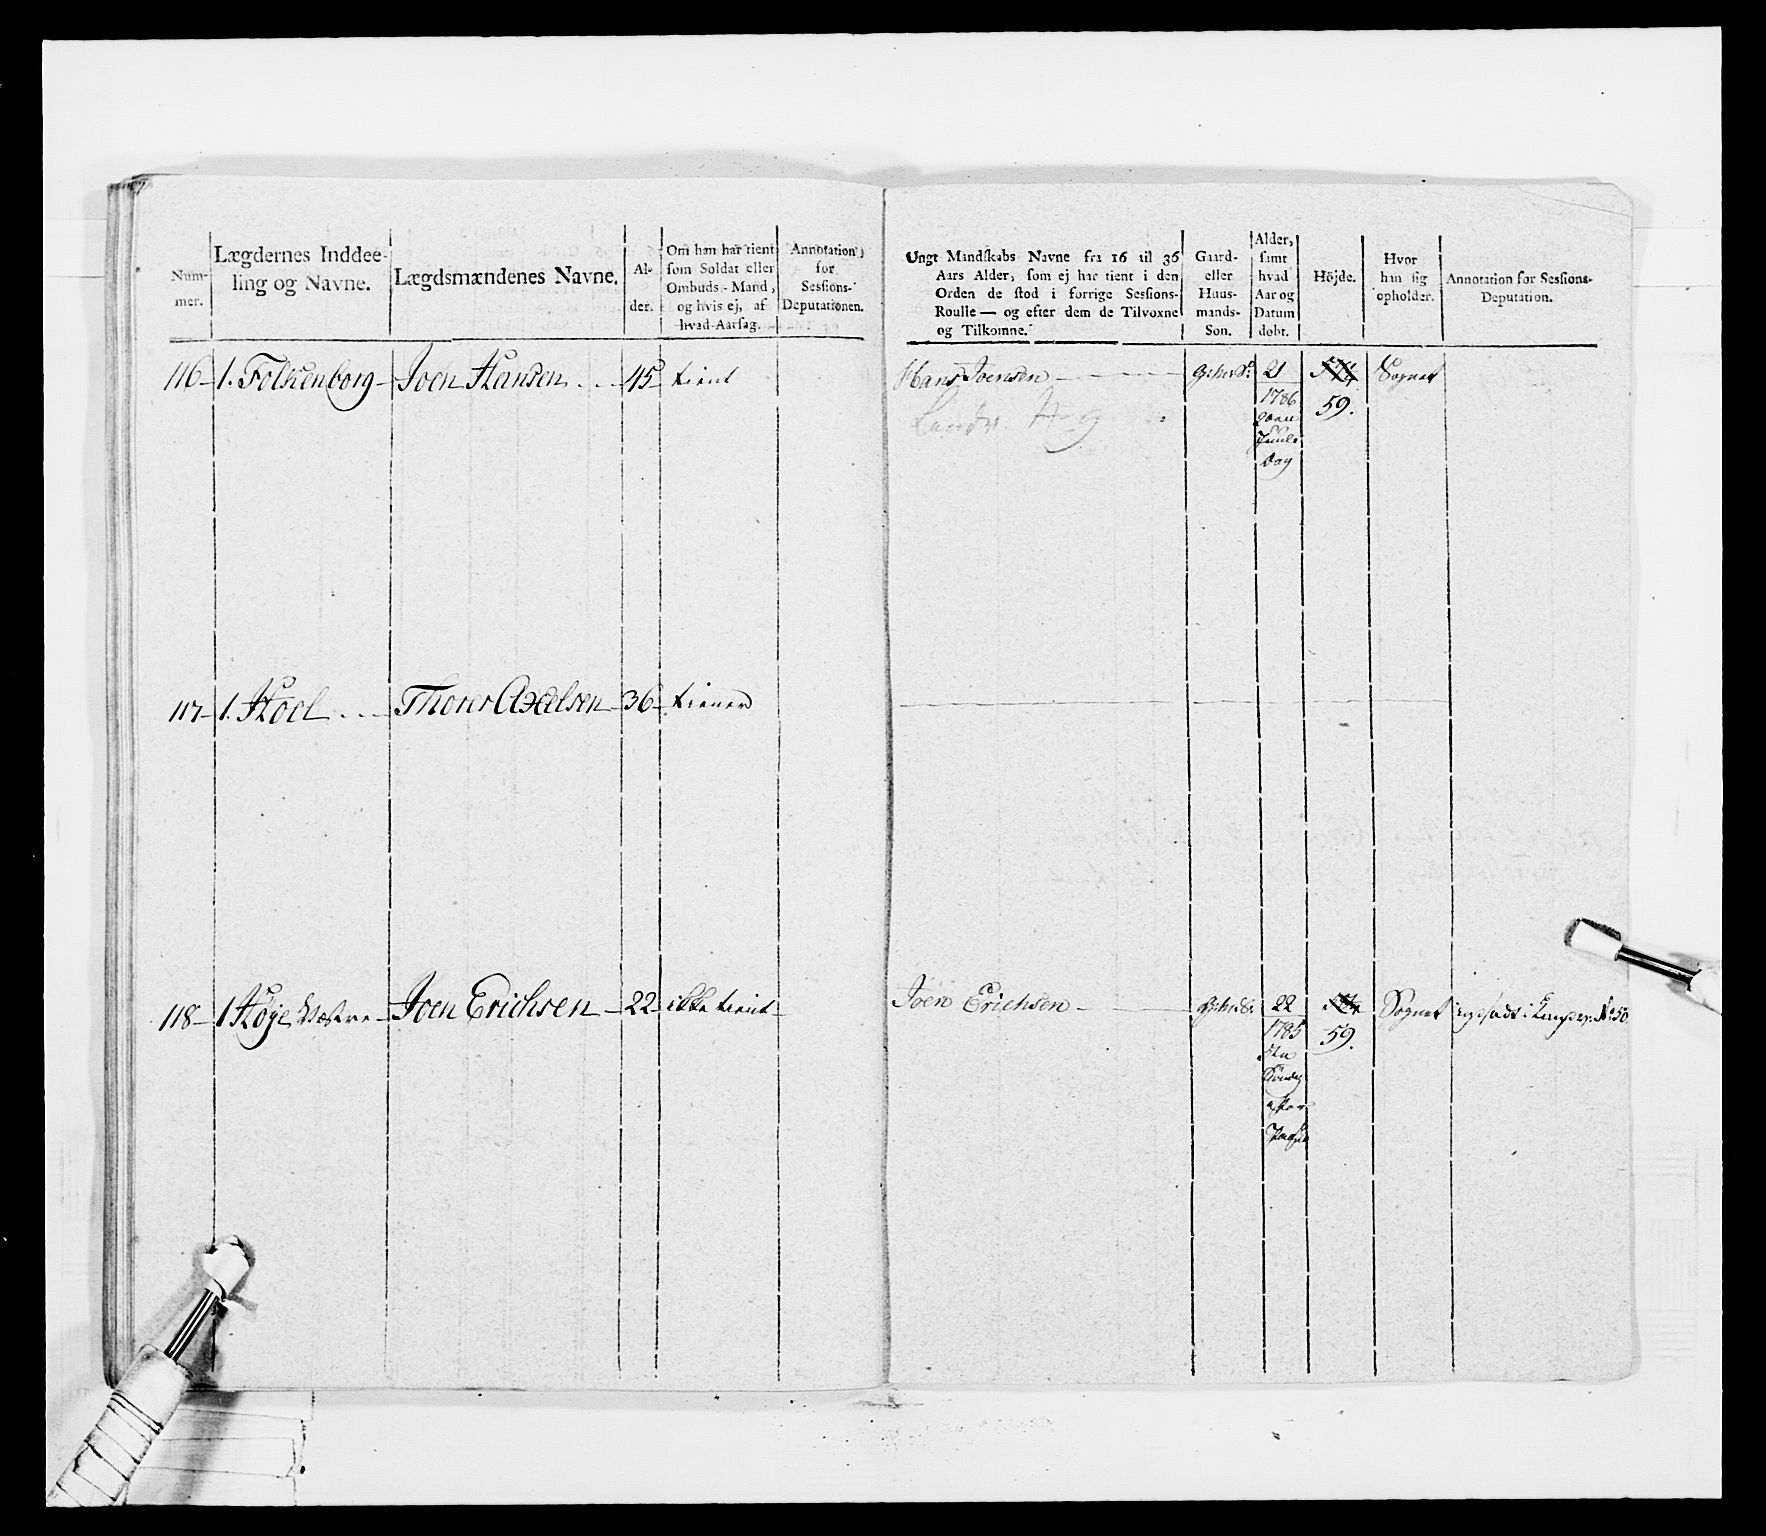 Num-
mer.
Lægdernes Inddee-
ling og Navne.
Lægdsmændenes Navne.
Al-
der.
Om han har tient
som Soldat eller
Ombuds-Mand,
og hvis ej, af
hvad Aarsag.
Annotation
for
Sessions-
Deputationen.
Ungt Mandskabs Navne fra 16 til 36
Aars Alder, som ej har tient i den
Orden de stod i forrige Sessions-
Roulle — og efter dem de Tilvoxne
og Tilkomne.
Gaard-
eller
Huus-
mands-
Son.
Alder,
samt
hvad
Aar og
Datum
döbt.
Höjde.
Hvor
han sig
opholder.
Annotation for Sessions-
Deputation.
116 1. Folkenborg Joen Hansen 45 tient
Hans Joensen 21 Sognet
1786 59.
Juule
Dag
117 1. Hoel Thorer Axelsen 36 tiener
118 1 Høje Væstre Joen Erichsen 22 ikke tient
Joen Erichsen 22 Sognet
1785 59.
5te
Sönda
efter